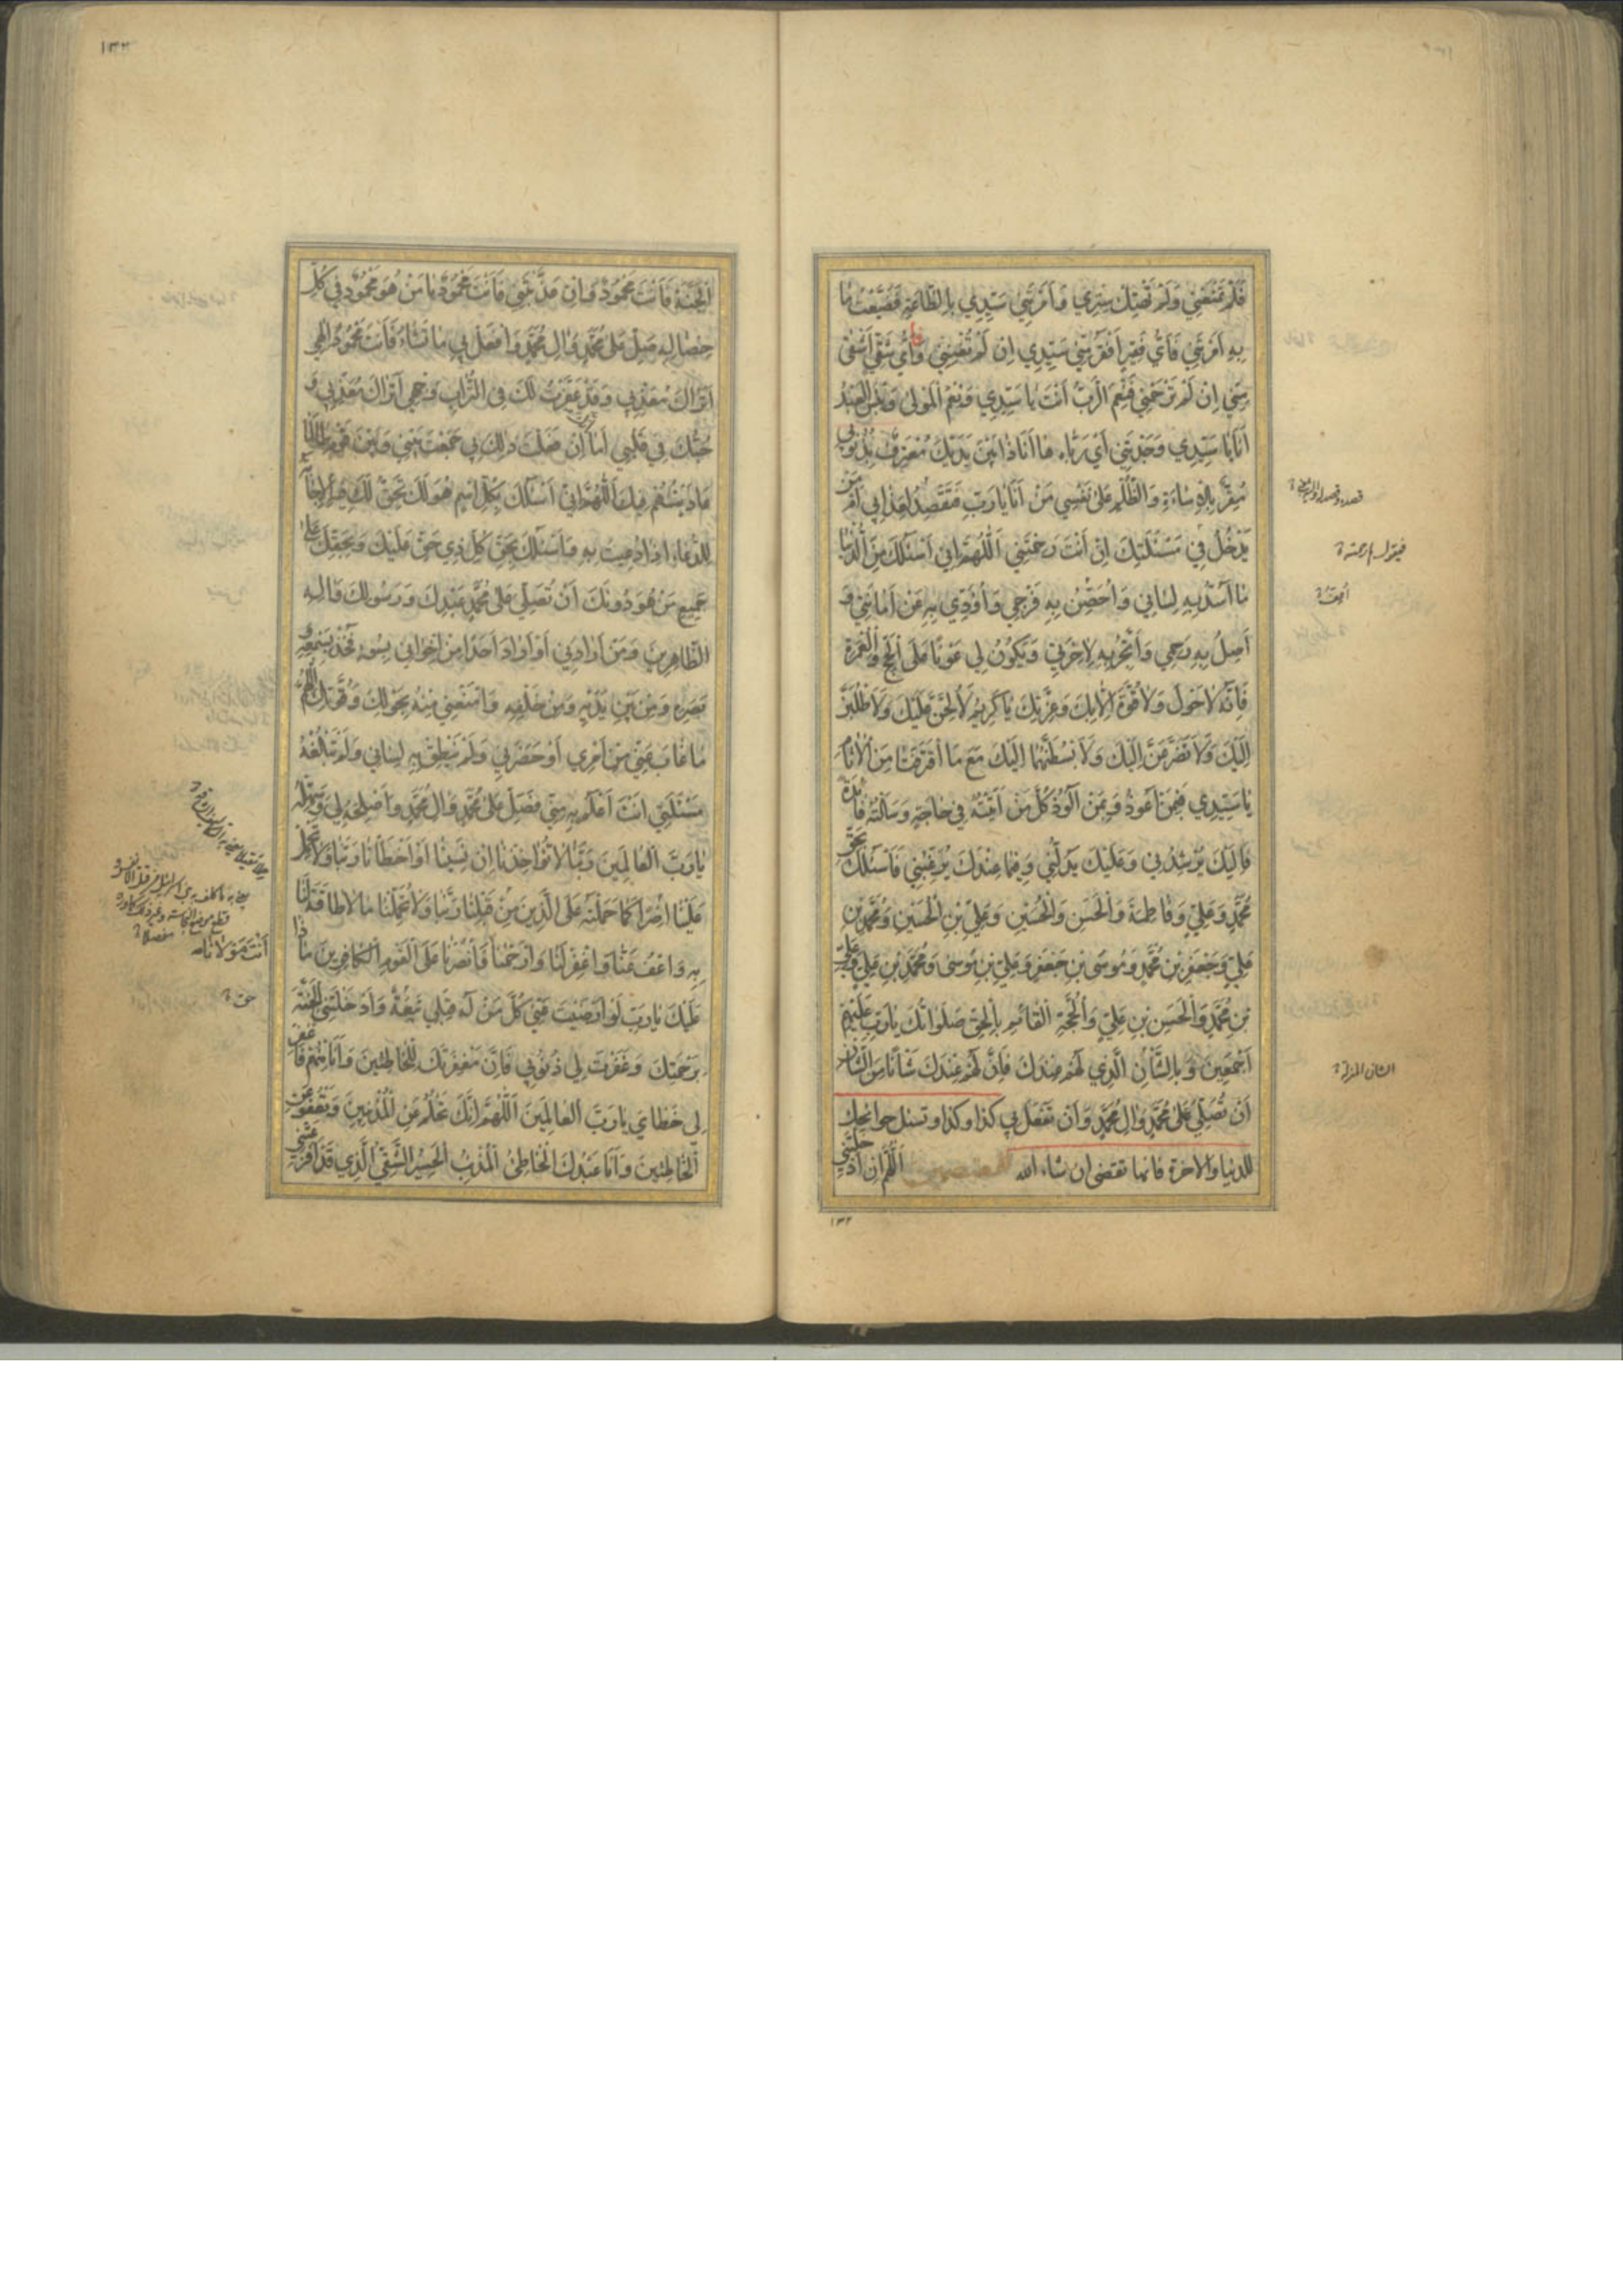 ١٣١
فَلَمْ تَمْنَعْنِي وَلَمْ تَهْتِكْ سِتْرِي وَأَمَرْتَنِي سَيِّدِي بِالطَّاعَةِ فَضَيَّعْتُ مَا
بِهِ أَمَرْتَنِي فَأَيُّ فَقِيرٍ أَفْقَرُ مِنِّي سَيِّدِي إِنْ لَمْ تُغْنِنِي فَأَيُّ شَقِيٍّ أَشْقَى
مِنِّي إِنْ لَمْ تَرْحَمْنِي فَنِعْمَ الرَّبُّ أَنْتَ يَا سَيِّدِي وَنِعْمَ الْمَوْلَى وَبِئْسَ الْعَبْدُ
أَنَا يَا سَيِّدِي وَجَدْتَنِي أَيْ رَبَّاهُ هَا أَنَا ذَا بَيْنَ يَدَيْكَ مُعْتَرِفٌ بِذُنُوبِي
مُقِرٌّ بِالْإِسَاءَةِ وَالظُّلْمِ عَلَى نَفْسِي مَنْ أَنَا يَا رَبِّ فَتَقْصِدَ لِعَذَابِي أَمْ مَنْ
يَدْخُلُ فِي مَسْئَلَتِكَ إِنْ أَنْتَ رَحِمْتَنِي اَللّٰهُمَّ إِنِّي أَسْئَلُكَ مِنَ الدُّنْيَا
مَا أَسُدُّ بِهِ لِسَانِي وَأُحْصِنُ بِهِ فَرْجِي وَأُؤَدِّي بِهِ عَنْ أَمَانَتِي وَ
أَصِلُ بِهِ رَحِمِي وَأَتَّجِرُ بِهِ لِآخِرَتِي وَيَكُونُ لِي عَوْنًا عَلَى الْحَجِّ وَالْعُمْرَةِ
فَإِنَّهُ لَا حَوْلَ وَلَا قُوَّةَ إِلَّا بِكَ وَعِزَّتِكَ يَا كَرِيمُ لَأُلِحَّنَّ عَلَيْكَ وَلَأَطْلُبَنَّ
إِلَيْكَ وَلَأَتَضَرَّعَنَّ إِلَيْكَ وَلَأَبْسُطَنَّهَا إِلَيْكَ مَعَ مَا اقْتَرَفَتَا مِنَ الْآثَامِ
يَا سَيِّدِي فَبِمَنْ أَعُوذُ وَبِمَنْ أَلُوذُ كُلُّ مَنْ أَتَيْتُهُ فِي حَاجَةٍ وَسَأَلْتُهُ فَائِدَةً
فَإِلَيْكَ يُرْشِدُنِي وَعَلَيْكَ يَدُلُّنِي وَفِيمَا عِنْدَكَ يُرَغِّبُنِي فَأَسْئَلُكَ بِحَقِّ
مُحَمَّدٍ وَعَلِيٍّ وَفَاطِمَةَ وَالْحَسَنِ وَالْحُسَيْنِ وَعَلِيِّ بْنِ الْحُسَيْنِ وَمُحَمَّدِ بْنِ
عَلِيٍّ وَجَعْفَرِ بْنِ مُحَمَّدٍ وَمُوسَى بْنِ جَعْفَرٍ وَعَلِيِّ بْنِ مُوسَى وَمُحَمَّدِ بْنِ عَلِيٍّ وَعَلِيِّ
بْنِ مُحَمَّدٍ وَالْحَسَنِ بْنِ عَلِيٍّ وَالْحُجَّةِ الْقَائِمِ بِالْحَقِّ صَلَوَاتُكَ يَا رَبِّ عَلَيْهِمْ
أَجْمَعِينَ وَبِالشَّأْنِ الَّذِي لَهُمْ عِنْدَكَ فَإِنَّ لَهُمْ عِنْدَكَ شَأْنًا مِنَ الشَّأْنِ
أَنْ تُصَلِّيَ عَلَى مُحَمَّدٍ وَآلِ مُحَمَّدٍ وَأَنْ تَفْعَلَ بِي كَذَا وكَذَا وتسئل حوائجك
للدنيا والاخرة فانها تقضى ان شاء الله اَللّٰهُمَّ إِنْ أَدْخَلْتَنِي
فيقول ارحمته
الشان المنزلة
١٣٢
١٣٢
الْجَنَّةَ فَأَنْتَ مَحْمُودٌ وَإِنْ عَذَّبْتَنِي فَأَنْتَ مَحْمُودٌ يَا مَنْ هُوَ مَحْمُودٌ فِي كُلِّ
خِصَالِهِ صَلِّ عَلَى مُحَمَّدٍ وَآلِ مُحَمَّدٍ وَافْعَلْ بِي مَا تَشَاءُ فَأَنْتَ مَحْمُودٌ إِلٰهِي
أَتُرَاكَ مُعَذِّبِي وَقَدْ عَفَّرْتُ لَكَ فِي التُّرَابِ وَجْهِي أَتُرَاكَ مُعَذِّبِي وَ
حُبُّكَ فِي قَلْبِي أَمَا إِنْ فَعَلْتَ ذٰلِكَ بِي جَمَعْتَ بَيْنِي وَبَيْنَ قَوْمٍ طَالَمَا
عَادَيْتُهُمْ فِيكَ اَللّٰهُمَّ إِنِّي أَسْئَلُكَ بِكُلِّ اسْمٍ هُوَ لَكَ يَحِقُّ لَكَ فِيهِ إِجَابَةُ
الدُّعَاءِ إِذَا دُعِيتَ بِهِ وَأَسْئَلُكَ بِحَقِّ كُلِّ ذِي حَقٍّ عَلَيْكَ وَبِحَقِّكَ عَلَى
جَمِيعِ مَنْ هُوَ دُونَكَ أَنْ تُصَلِّيَ عَلَى مُحَمَّدٍ عَبْدِكَ وَرَسُولِكَ وَآلِهِ
الطَّاهِرِينَ وَمَنْ أَرَادَنِي أَوْ أَرَادَ أَحَدًا مِنْ إِخْوَانِي بِسُوءٍ فَخُذْ بِسَمْعِهِ وَ
بَصَرِهِ وَمِنْ بَيْنِ يَدَيْهِ وَمِنْ خَلْفِهِ وَامْنَعْنِي مِنْهُ بِحَوْلِكَ وَقُوَّتِكَ اَللّٰهُمَّ
مَا غَابَ عَنِّي مِنْ أَمْرِي أَوْ حَضَرَنِي وَلَمْ يَنْطِقْ بِهِ لِسَانِي وَلَمْ تَبْلُغْهُ
مَسْئَلَتِي أَنْتَ أَعْلَمُ بِهِ مِنِّي فَصَلِّ عَلَى مُحَمَّدٍ وَآلِ مُحَمَّدٍ وَأَصْلِحْهُ لِي وَسَهِّلْهُ
يَا رَبَّ الْعَالَمِينَ رَبَّنَا لَا تُؤَاخِذْنَا إِنْ نَسِينَا أَوْ أَخْطَأْنَا رَبَّنَا وَلَا تَحْمِلْ
عَلَيْنَا إِصْرًا كَمَا حَمَلْتَهُ عَلَى الَّذِينَ مِنْ قَبْلِنَا رَبَّنَا وَلَا تُحَمِّلْنَا مَا لَا طَاقَةَ لَنَا
بِهِ وَاعْفُ عَنَّا وَاغْفِرْ لَنَا وَارْحَمْنَا فَانْصُرْنَا عَلَى الْقَوْمِ الْكَافِرِينَ مَا ذَا
عَلَيْكَ يَا رَبِّ لَوْ أَرْضَيْتَ عَنِّي كُلَّ مَنْ لَهُ قِبَلِي تَبِعَةٌ وَأَدْخَلْتَنِي الْجَنَّةَ
بِرَحْمَتِكَ وَغَفَرْتَ لِي ذُنُوبِي فَإِنَّ مَغْفِرَتَكَ لِلْخَاطِئِينَ وَأَنَا مِنْهُمْ فَاغْفِرْ
لِي خَطَايَ يَا رَبَّ الْعَالَمِينَ اَللّٰهُمَّ إِنَّكَ تَحْلُمُ عَنِ الْمُذْنِبِينَ وَتَعْفُو عَنِ
الْخَاطِئِينَ وَأَنَا عَبْدُكَ الْخَاطِئُ الْمُذْنِبُ الْحَسِيرُ الشَّقِيُّ الَّذِي قَدْ أَفْزَعَتْنِي
أَنْتَ مَوْلَانَا